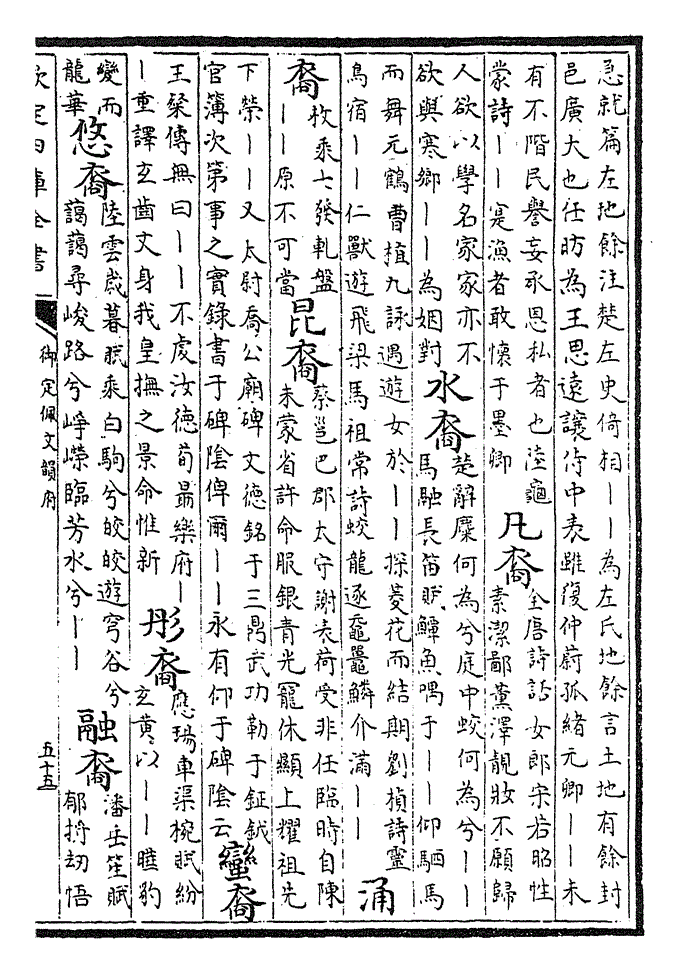 急就篇左地餘注楚左史倚相丨丨為左氏地餘言土地有餘封
邑廣大也任昉為王思遠讓侍中表雖復仲蔚孤緒元卿丨丨未
有不階民譽妄承恩私者也陸龜
蒙詩丨丨寔漁者敢懷于墨卿
凡裔
全唐詩話女郎宋若昭性
素潔鄙薰澤靚妝不願歸
人欲以學名家家亦不
欲與寒鄉丨丨為姻對
水裔
楚辭麋何為兮庭中蛟何為兮丨丨
馬融長笛賦鱏魚喁于丨丨仰駟馬
而舞元鶴曹植九詠遇遊女於丨丨探菱花而結期劉楨詩靈
鳥宿丨丨仁獸遊飛梁馬祖常詩蛟龍逐黿鼉鱗介滿丨丨
涌
裔
枚乘七發軋盤
丨丨原不可當
昆裔
蔡邕巴郡太守謝表荷受非任臨時自陳
未蒙省許命服銀青光寵休顯上耀祖先
下榮丨丨又太尉喬公廟碑文德銘于三鼎武功勒于鉦鉞
官簿次第事之實錄書于碑陰俾爾丨丨永有仰于碑陰云
蠻裔
王粲傳無曰丨丨不虔汝德荀勗樂府丨
丨重譯玄齒文身我皇撫之景命惟新
彤裔
應瑒車渠椀賦紛
玄黃以丨丨曄豹
變而
龍華
悠裔
陸雲歲暮賦乘白駒兮皎皎遊穹谷兮
藹藹尋峻路兮崢嶸臨芳水兮丨丨
融裔
潘岳笙賦
郁捋劫悟
欽定四庫全書
御定佩文韻府
五十五